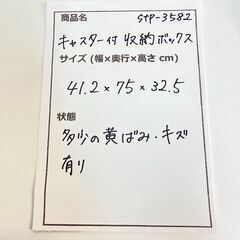 商品名 stp-3582
キャスター付 収納ボックス
サイズ (幅×奥行×高さ cm)
41.2 × 75 × 32.5
状態
多少の黄ばみ・キズ
有り